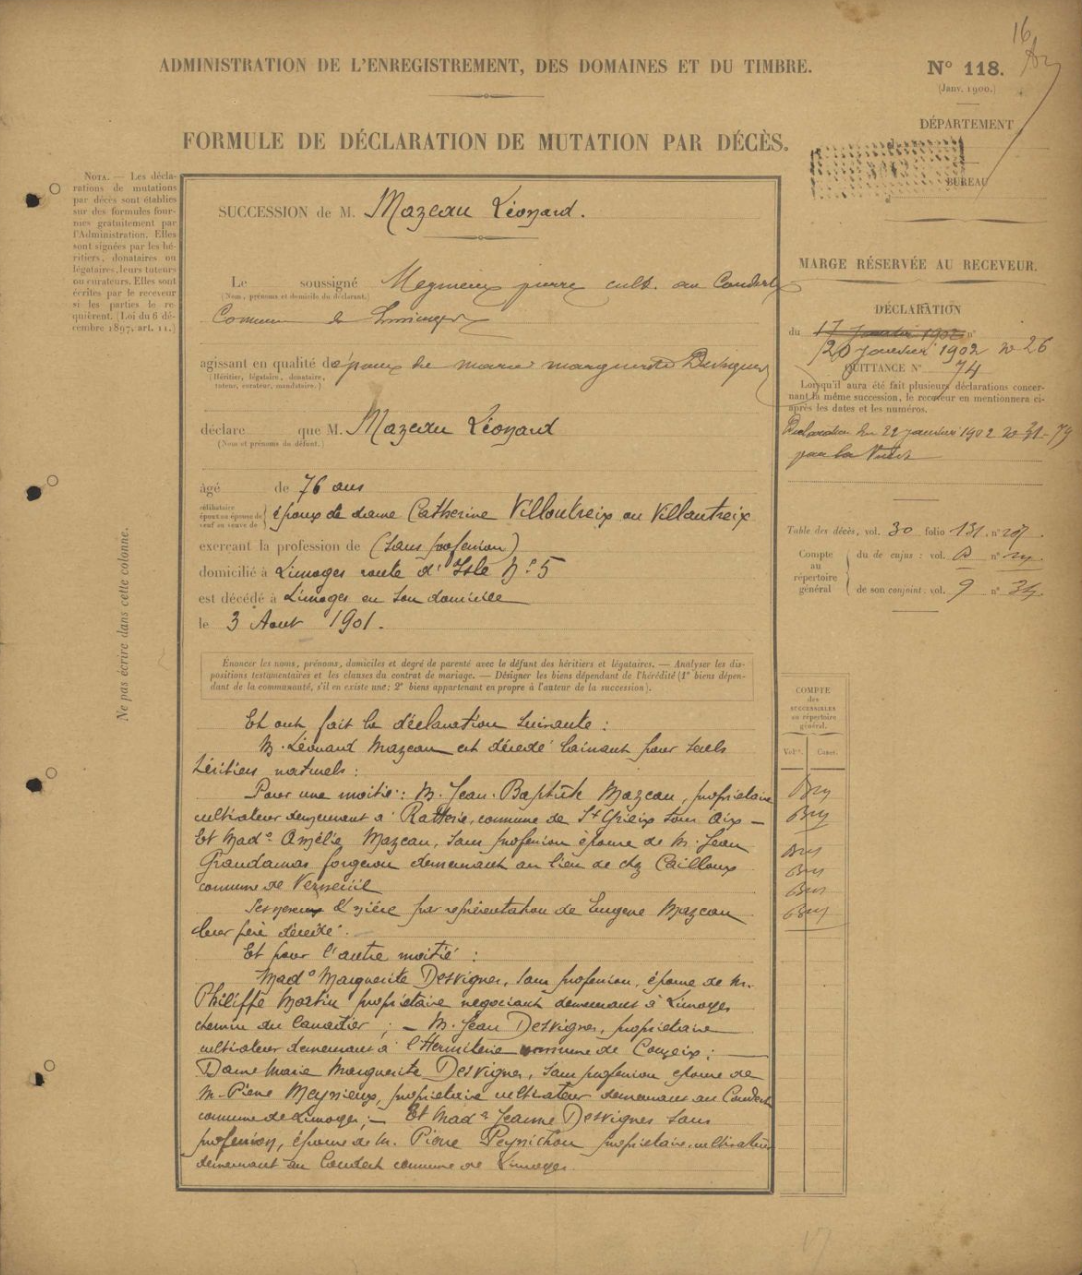 16
ADMINISTRATION DE L'ENREGISTREMENT, DES DOMAINES ET DU TIMBRE.
N° 118.
(Janv. 1900.)
FORMULE DE DÉCLARATION DE MUTATION PAR DÉCÈS.
DÉPARTEMENT
BUREAU
NOTA. — Les décla-
rations de mutations
par décès sont établies
sur des formules four-
nies gratuitement par
l'Administration. Elles
sont signées par les hé-
ritiers, donataires ou
légataires, leurs tuteurs
ou curateurs. Elles sont
écrites par le receveur
si les parties le re-
quièrent. (Loi du 6 dé-
cembre 1897, art. 11.)
Ne pas écrire dans cette colonne.
SUCCESSION de M. Mazeau Léonard.
Le soussigné Meynieux pierre cult. au Coudert
(Nom, prénoms et domicile du déclarant.)
Commune de Limoges
agissant en qualité d'époux de marie marguerite Desvignes
(Héritier, légataire, donataire,
tuteur, curateur, mandataire.)
déclare que M. Mazeau Léonard
(Nom et prénoms du défunt.)
âgé de 76 ans
célibataire
époux ou épouse de
veuf ou veuve de
époux de dame Catherine Villoutreix ou Villautreix
exerçant la profession de (sans profession)
domicilié à Limoges route d'Isle N° 5
est décédé à Limoges en son domicile
le 3 Aout 1901.
Énoncer les noms, prénoms, domiciles et degré de parenté avec le défunt des héritiers et légataires. — Analyser les dis-
positions testamentaires et les clauses du contrat de mariage. — Désigner les biens dépendant de l'hérédité (1° biens dépen-
dant de la communauté, s'il en existe une; 2° biens appartenant en propre à l'auteur de la succession).
Et ont fait la déclaration suivante :
M. Léonard Mazeau est décédé laissant pour seuls
héritiers naturels :
Pour une moitié : M. Jean-Baptiste Mazeau, propriétaire
cultivateur demeurant à Ratterie, commune de St Yrieix sous Aixe —
Et Made Amélie Mazeau, sans profession épouse de M. Jean
Grandamas forgeron demeurant au lieu de chez Cailloux
commune de Verneuil
Ses neveu & nièce par représentation de Eugène Mazeau
leur père décédé.
Et pour l'autre moitié :
Made Marguerite Desvignes, sans profession, épouse de M.
Philippe Martin propriétaire négociant demeurant à Limoges
chemin du Canadier ; — M. Jean Desvignes, propriétaire
cultivateur demeurant à l'Hermiterie commune de Couzeix ;
Dame Marie Marguerite Desvignes, sans profession épouse de
M. Pierre Meynieux, propriétaire cultivateur demeurant au Coudert
commune de Limoges ; — Et Made Jeanne Desvignes sans
profession, épouse de M. Pierre Peynichou propriétaire cultivateur
demeurant au Coudert commune de Limoges.
MARGE RÉSERVÉE AU RECEVEUR.
DÉCLARATION
du 17 Janvier 1902 n°
20 janvier 1902 n° 26
QUITTANCE N° 74
Lorsqu'il aura été fait plusieurs déclarations concer-
nant la même succession, le receveur en mentionnera ci-
après les dates et les numéros.
Déclaration du 22 janvier 1902 n° 31-79
par la
Table des décès, vol. 30 folio 131 n° 207
Compte
au
répertoire
général
du de cujus : vol. n°
de son conjoint : vol. 9 n° 34
COMPTE
des
SUCCESSIBLES
au répertoire
général.
Vol. Case.